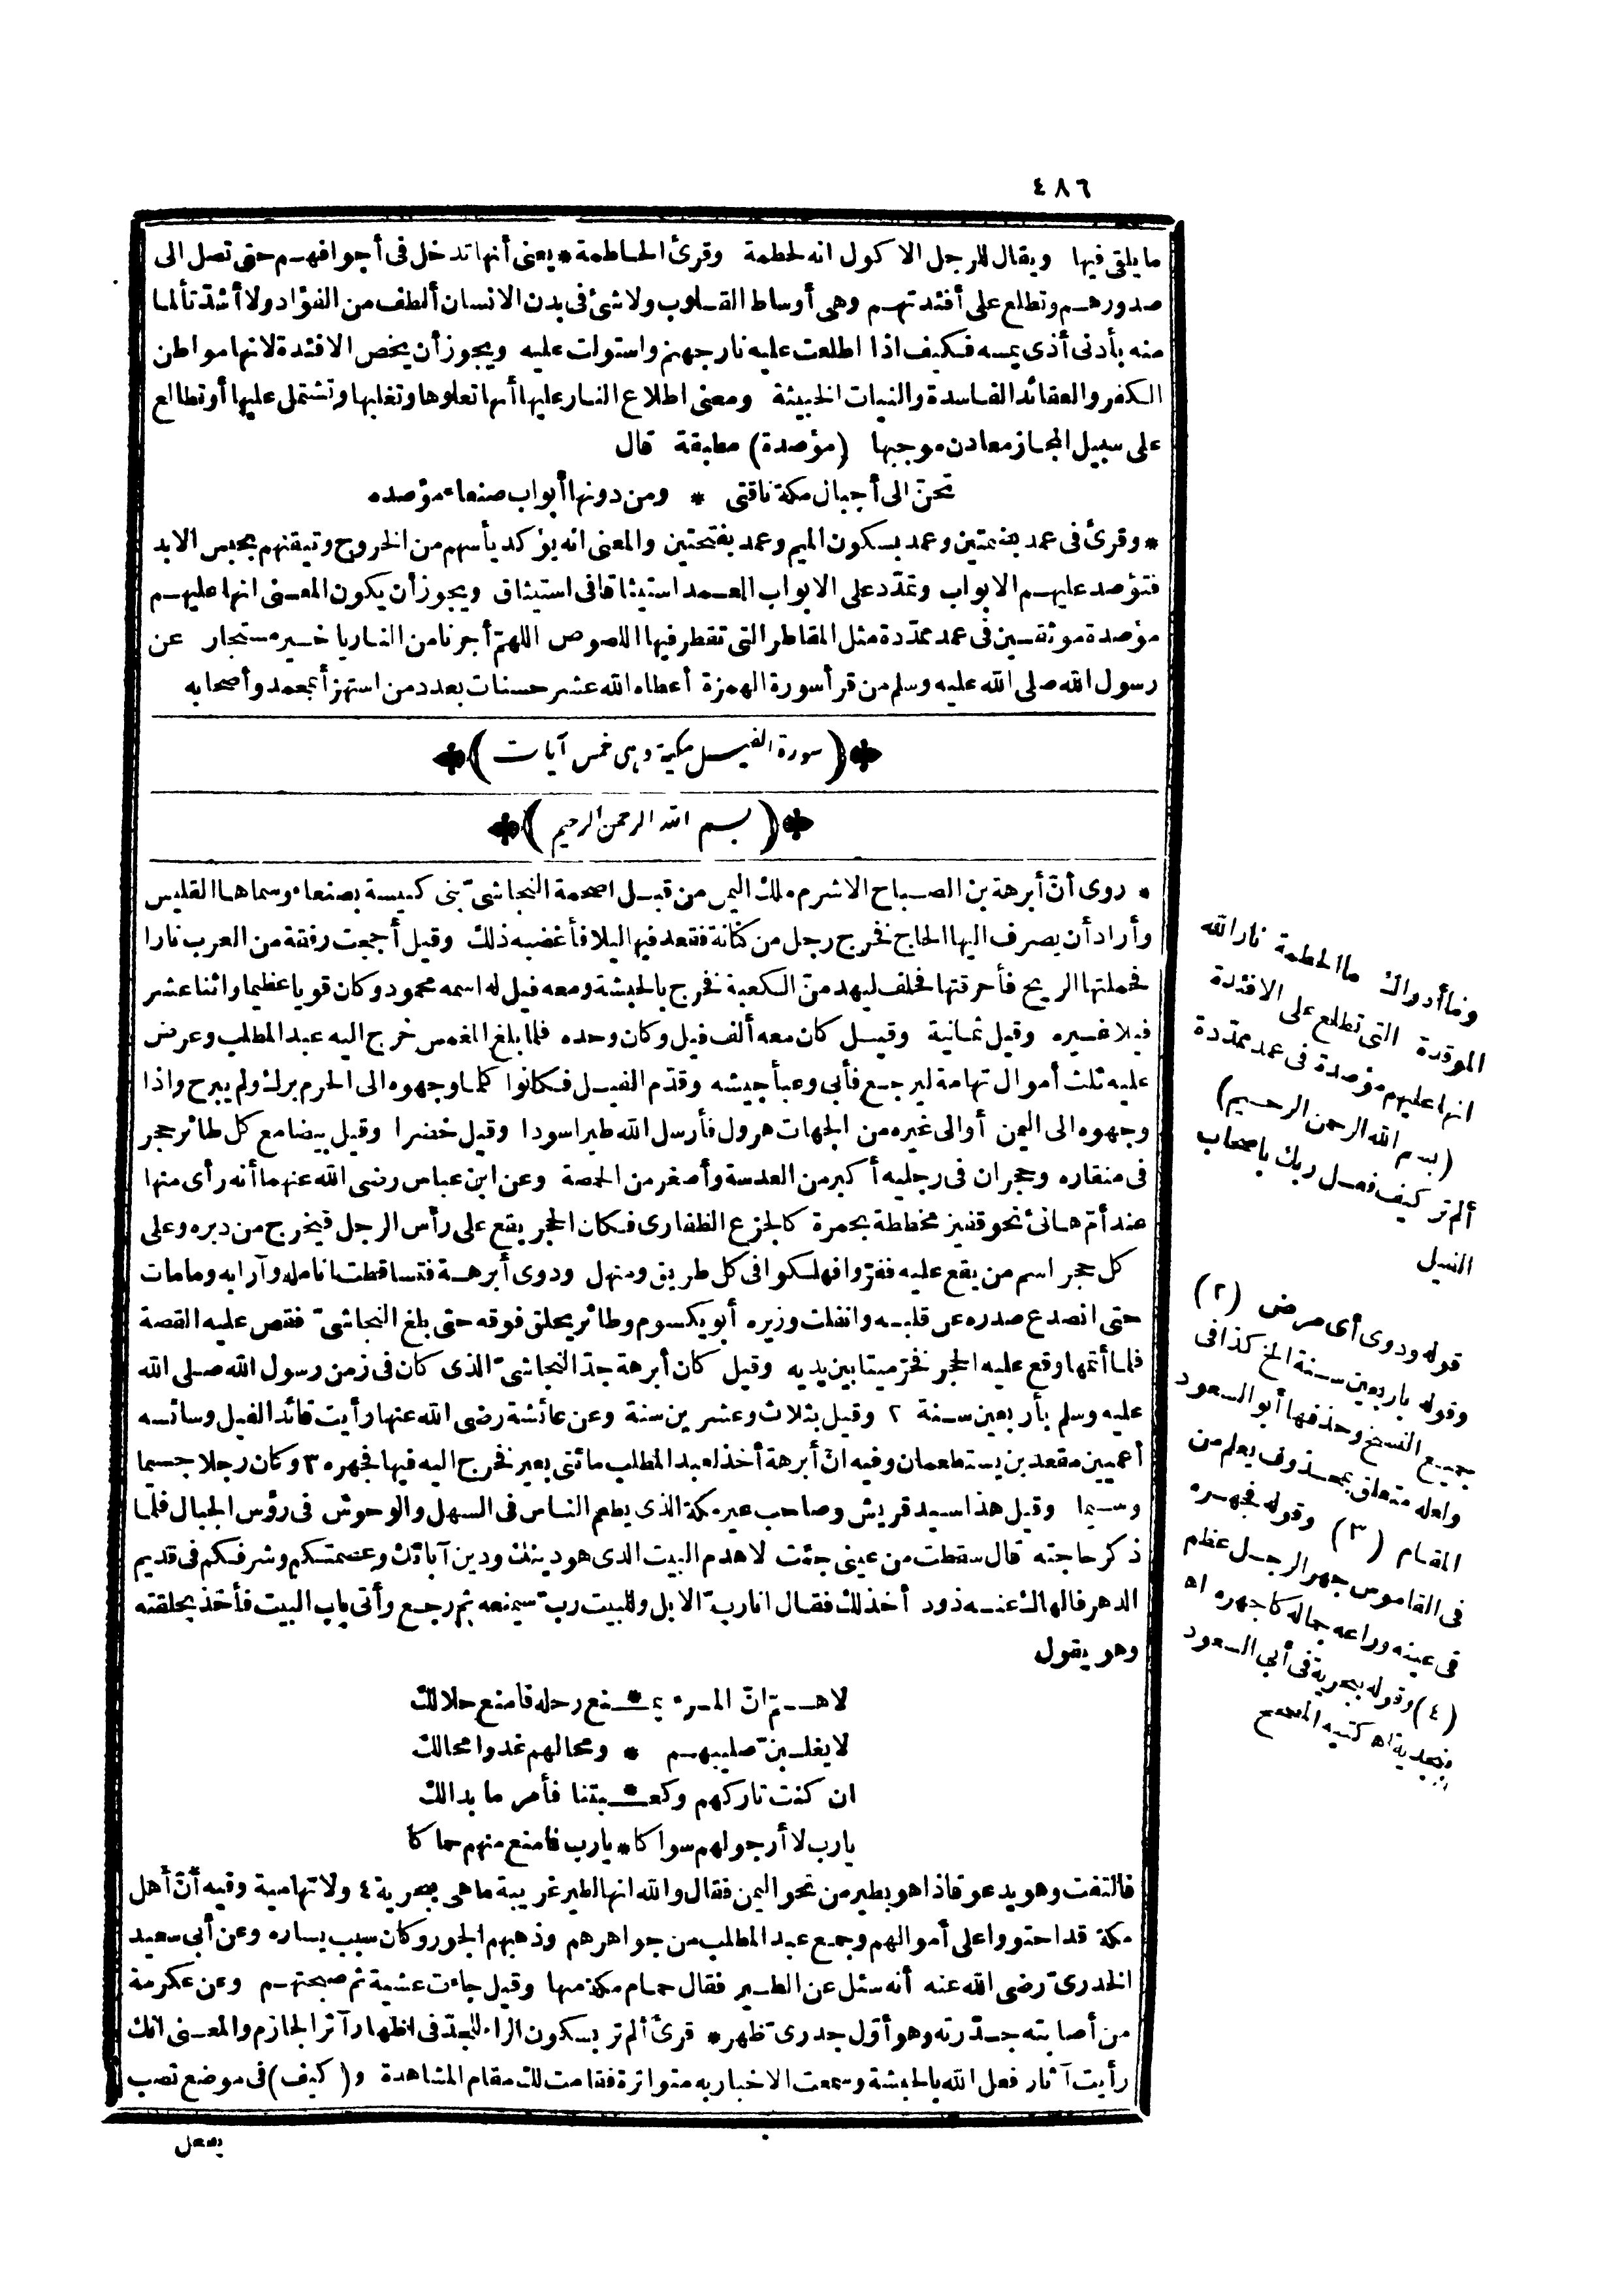 ٤٨٦
ما يلقى فيها ويقال للرجل الاكول انه لحطمة وقرئ الحاطمة * يعنى أنها تدخل فى أجوافهم حتى تصل الى
صدورهم وتطلع على أفئدتهم وهى أوساط القلوب ولا شئ فى بدن الانسان ألطف من الفؤاد ولا أشدّ تألما
منه بأدنى أذى يمسه فكيف اذا اطلعت عليه نار جهنم واستولت عليه ويجوز أن يخص الافئدة لانها مواطن
الكفر والعقائد الفاسدة والنيات الخبيثة ومعنى اطلاع النار عليها أنها تعلوها وتغلبها وتشتمل عليها أو تطالع
على سبيل المجاز معادن موجبها (مؤصدة) مطبقة قال
تحنّ الى أجبال مكة ناقتى * ومن دونها أبواب صنعاء مؤصده
* وقرئ فى عمد بضمتين وعمد بسكون الميم وعمد بفتحتين والمعنى انه يؤكد يأسهم من الخروج وتيقنهم بحبس الابد
فتؤصد عليهم الابواب وتمدّد على الابواب العمد استيثاقا فى استيثاق ويجوز أن يكون المعنى انها عليهم
مؤصدة موثقين فى عمد ممدّدة مثل المقاطر التى تقطر فيها اللصوص اللهمّ أجرنا من النار يا خير مستجار عن
رسول الله صلى الله عليه وسلم من قرأ سورة الهمزة أعطاه الله عشر حسنات بعدد من استهزأ بمحمد وأصحابه
(سورة الفيل مكية وهى خمس آيات)
(بسم الله الرحمن الرحيم)
* روى أنّ أبرهة بن الصباح الاشرم ملك اليمن من قبل اصحمة النجاشىّ بنى كنيسة بصنعاء وسماها القليس
وأراد أن يصرف اليها الحاج فخرج رجل من كنانة فقعد فيها ليلا فأغضبه ذلك وقيل أججت رفقة من العرب نارا
فحملتها الريح فأحرقتها فحلف ليهدمنّ الكعبة فخرج بالحبشة ومعه فيل له اسمه محمود وكان قويا عظيما واثنا عشر
فيلا غيره وقيل ثمانية وقيل كان معه ألف فيل وكان وحده فلما بلغ المغمس خرج اليه عبد المطلب وعرض
عليه ثلث أموال تهامة ليرجع فأبى وعبأ جيشه وقدّم الفيل فكانوا كلما وجهوه الى الحرم برك ولم يبرح واذا
وجهوه الى اليمن أو الى غيره من الجهات هرول فأرسل الله طيرا سودا وقيل خضرا وقيل بيضا مع كل طائر حجر
فى منقاره وحجران فى رجليه أكبر من العدسة وأصغر من الحمصة وعن ابن عباس رضى الله عنهما أنه رأى منها
عند أمّ هانئ نحو قفيز مخططة بحمرة كالجزع الظفارى فكان الحجر يقع على رأس الرجل فيخرج من دبره وعلى
كل حجر اسم من يقع عليه ففرّوا فهلكوا فى كل طريق ومنهل ودوى أبرهة فتساقطت انامله وآرابه وما مات
حتى انصدع صدره عن قلبه وانفلت وزيره أبو يكسوم وطائر يحلق فوقه حتى بلغ النجاشىّ فقص عليه القصة
فلما أتمها وقع عليه الحجر فخرّ ميتا بين يديه وقيل كان أبرهة جدّ النجاشىّ الذى كان فى زمن رسول الله صلى الله
عليه وسلم بأربعين سنة ٢ وقيل بثلاث وعشرين سنة وعن عائشة رضى الله عنها رأيت قائد الفيل وسائسه
أعميين مقعدين يستطعمان وفيه انّ أبرهة أخذ لعبد المطلب مائتى بعير فخرج اليه فيها فجهره ٣ وكان رجلا جسيما
وسيما وقيل هذا سيد قريش وصاحب عير مكة الذى يطعم الناس فى السهل والوحوش فى رؤس الجبال فلما
ذكر حاجته قال سقطت من عينى جئت لاهدم البيت الذى هو دينك ودين آبائك وعصمتكم وشرفكم فى قديم
الدهر فألهاك عنه ذود أخذ لك فقال انا ربّ الابل وللبيت ربّ سيمنعه ثم رجع وأتى باب البيت فأخذ بحلقته
وهو يقول
لاهمّ انّ المرء يمـ * ـنع رحله فامنع حلالك
لا يغلبنّ صليبهم * ومحالهم غدوا محالك
ان كنت تاركهم وكعـ * ـبتنا فأمر ما بدا لك
يا رب لا أرجو لهم سواكا * يا رب فامنع منهم حماكا
فالتفت وهو يدعو فاذا هو بطير من نحو اليمن فقال والله انها لطير غريبة ما هى ببحرية ٤ ولا تهامية وفيه أنّ أهل
مكة قد احتووا على أموالهم وجمع عبد المطلب من جواهرهم وذهبهم الجور وكان سبب يساره وعن أبى سعيد
الخدرىّ رضى الله عنه أنه سئل عن الطير فقال حمام مكة منها وقيل جاءت عشية ثم صبحتهم وعن عكرمة
من أصابته جدّرته وهو أوّل جدرىّ ظهر * قرئ ألم تر بسكون الراء للجدّ فى اظهار أثر الجازم والمعنى انك
رأيت آثار فعل الله بالحبشة وسمعت الاخبار به متواترة فقامت لك مقام المشاهدة و(كيف) فى موضع نصب
بفعل
وما أدراك ما الحطمة نار الله
الموقدة التى تطلع على الافئدة
انها عليهم مؤصدة فى عمد ممدّدة
(بسم الله الرحمن الرحيم)
ألم تر كيف فعل ربك باصحاب
الفيل
قوله ودوى أى مرض (٢)
وقوله باربعين سنة الخ كذا فى
جميع النسخ وحذفها أبو السعود
ولعله متعلق بمحذوف يعلم من
المقام (٣) وقوله فجهره
فى القاموس جهر الرجل عظم
فى عينه وراعه جماله كاجهره اه
(٤) وقوله ببحرية فى أبى السعود
بنجدية اه كتبه المصحح